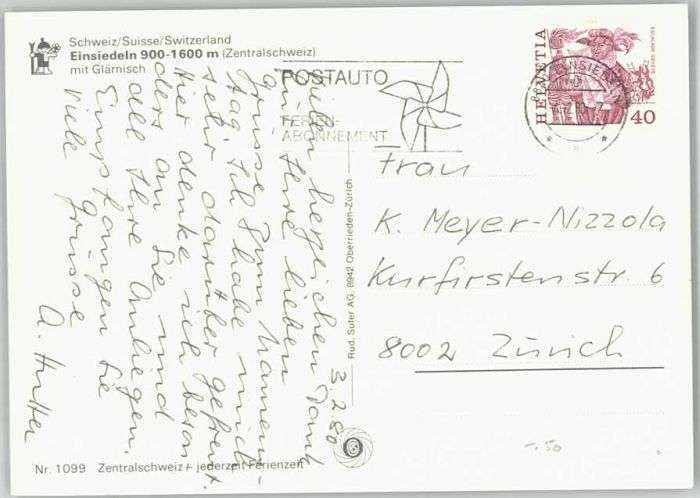 Schweiz/Suisse/Switzerland
Einsiedeln 900-1600 m (Zentralschweiz)
mit Glärnisch
POSTAUTO
FERIEN-
ABONNEMENT
HELVETIA
40
EINSIEDELN
3.2.80
Vielen herzlichen Dank
für Ihre lieben
Grüsse zum Namens-
tag. Ich habe mich
sehr darüber gefreut.
Hier denke ich beson
ders an Sie und
all Ihre Anliegen.
Empfangen Sie
viele Grüsse
A. Hutter
Frau
K. Meyer-Nizzola
Kurfirstenstr. 6
8002 Zürich
Rud. Suter AG, 8942 Oberrieden-Zürich
-.50
Nr. 1099 Zentralschweiz + jederzeit Ferienzeit